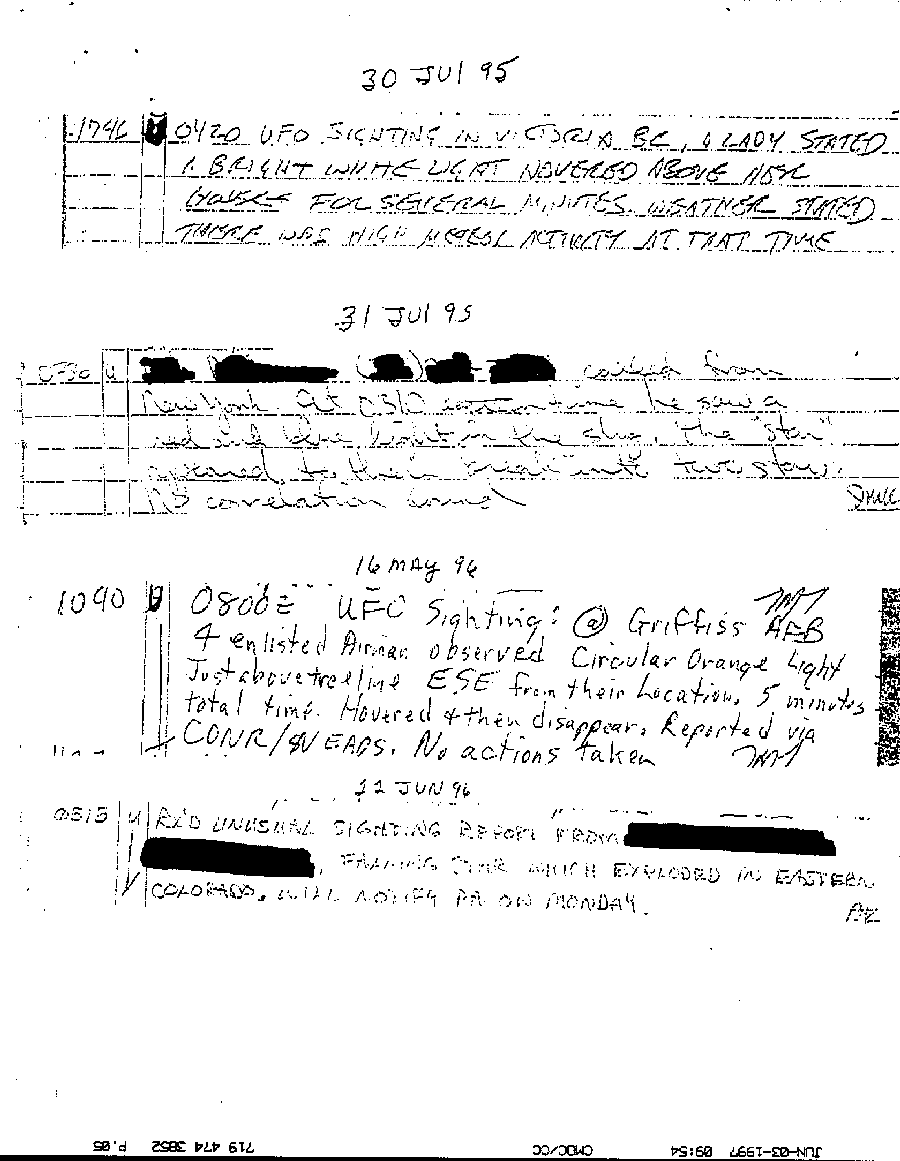 30 JUl 95
1746 0420 UFO SIGHTING IN VICTORIA BC, A LADY STATED
A BRIGHT WHITE LIGHT HOVERED ABOVE HER
HOUSE FOR SEVERAL MINUTES. WEATHER STATED
THERE WAS HIGH METEOR ACTIVITY AT THAT TIME
31 JUl 95
0530 U called from
New York at 0310 time he saw a
red and blue light in the sky. The "star"
appeared to then break into two stars.
No correlation found
16 MAY 96
1090 U 0800Z UFO Sighting: @ Griffiss AFB
4 enlisted Airman observed Circular Orange Light
Just above treeline ESE from their Location, 5 minutes
total time. Hovered & then disappear. Reported via
CONR/ NEADS. No actions taken
22 JUN 96
0515 U RX'D UNUSUAL SIGHTING REPORT FROM
, FLAMING STAR WHICH EXPLODED IN EASTERN
COLORADO. WILL NOTIFY PA ON MONDAY.
JUN-03-1997 09:54 CMOC/CC 719 474 3852 P.05